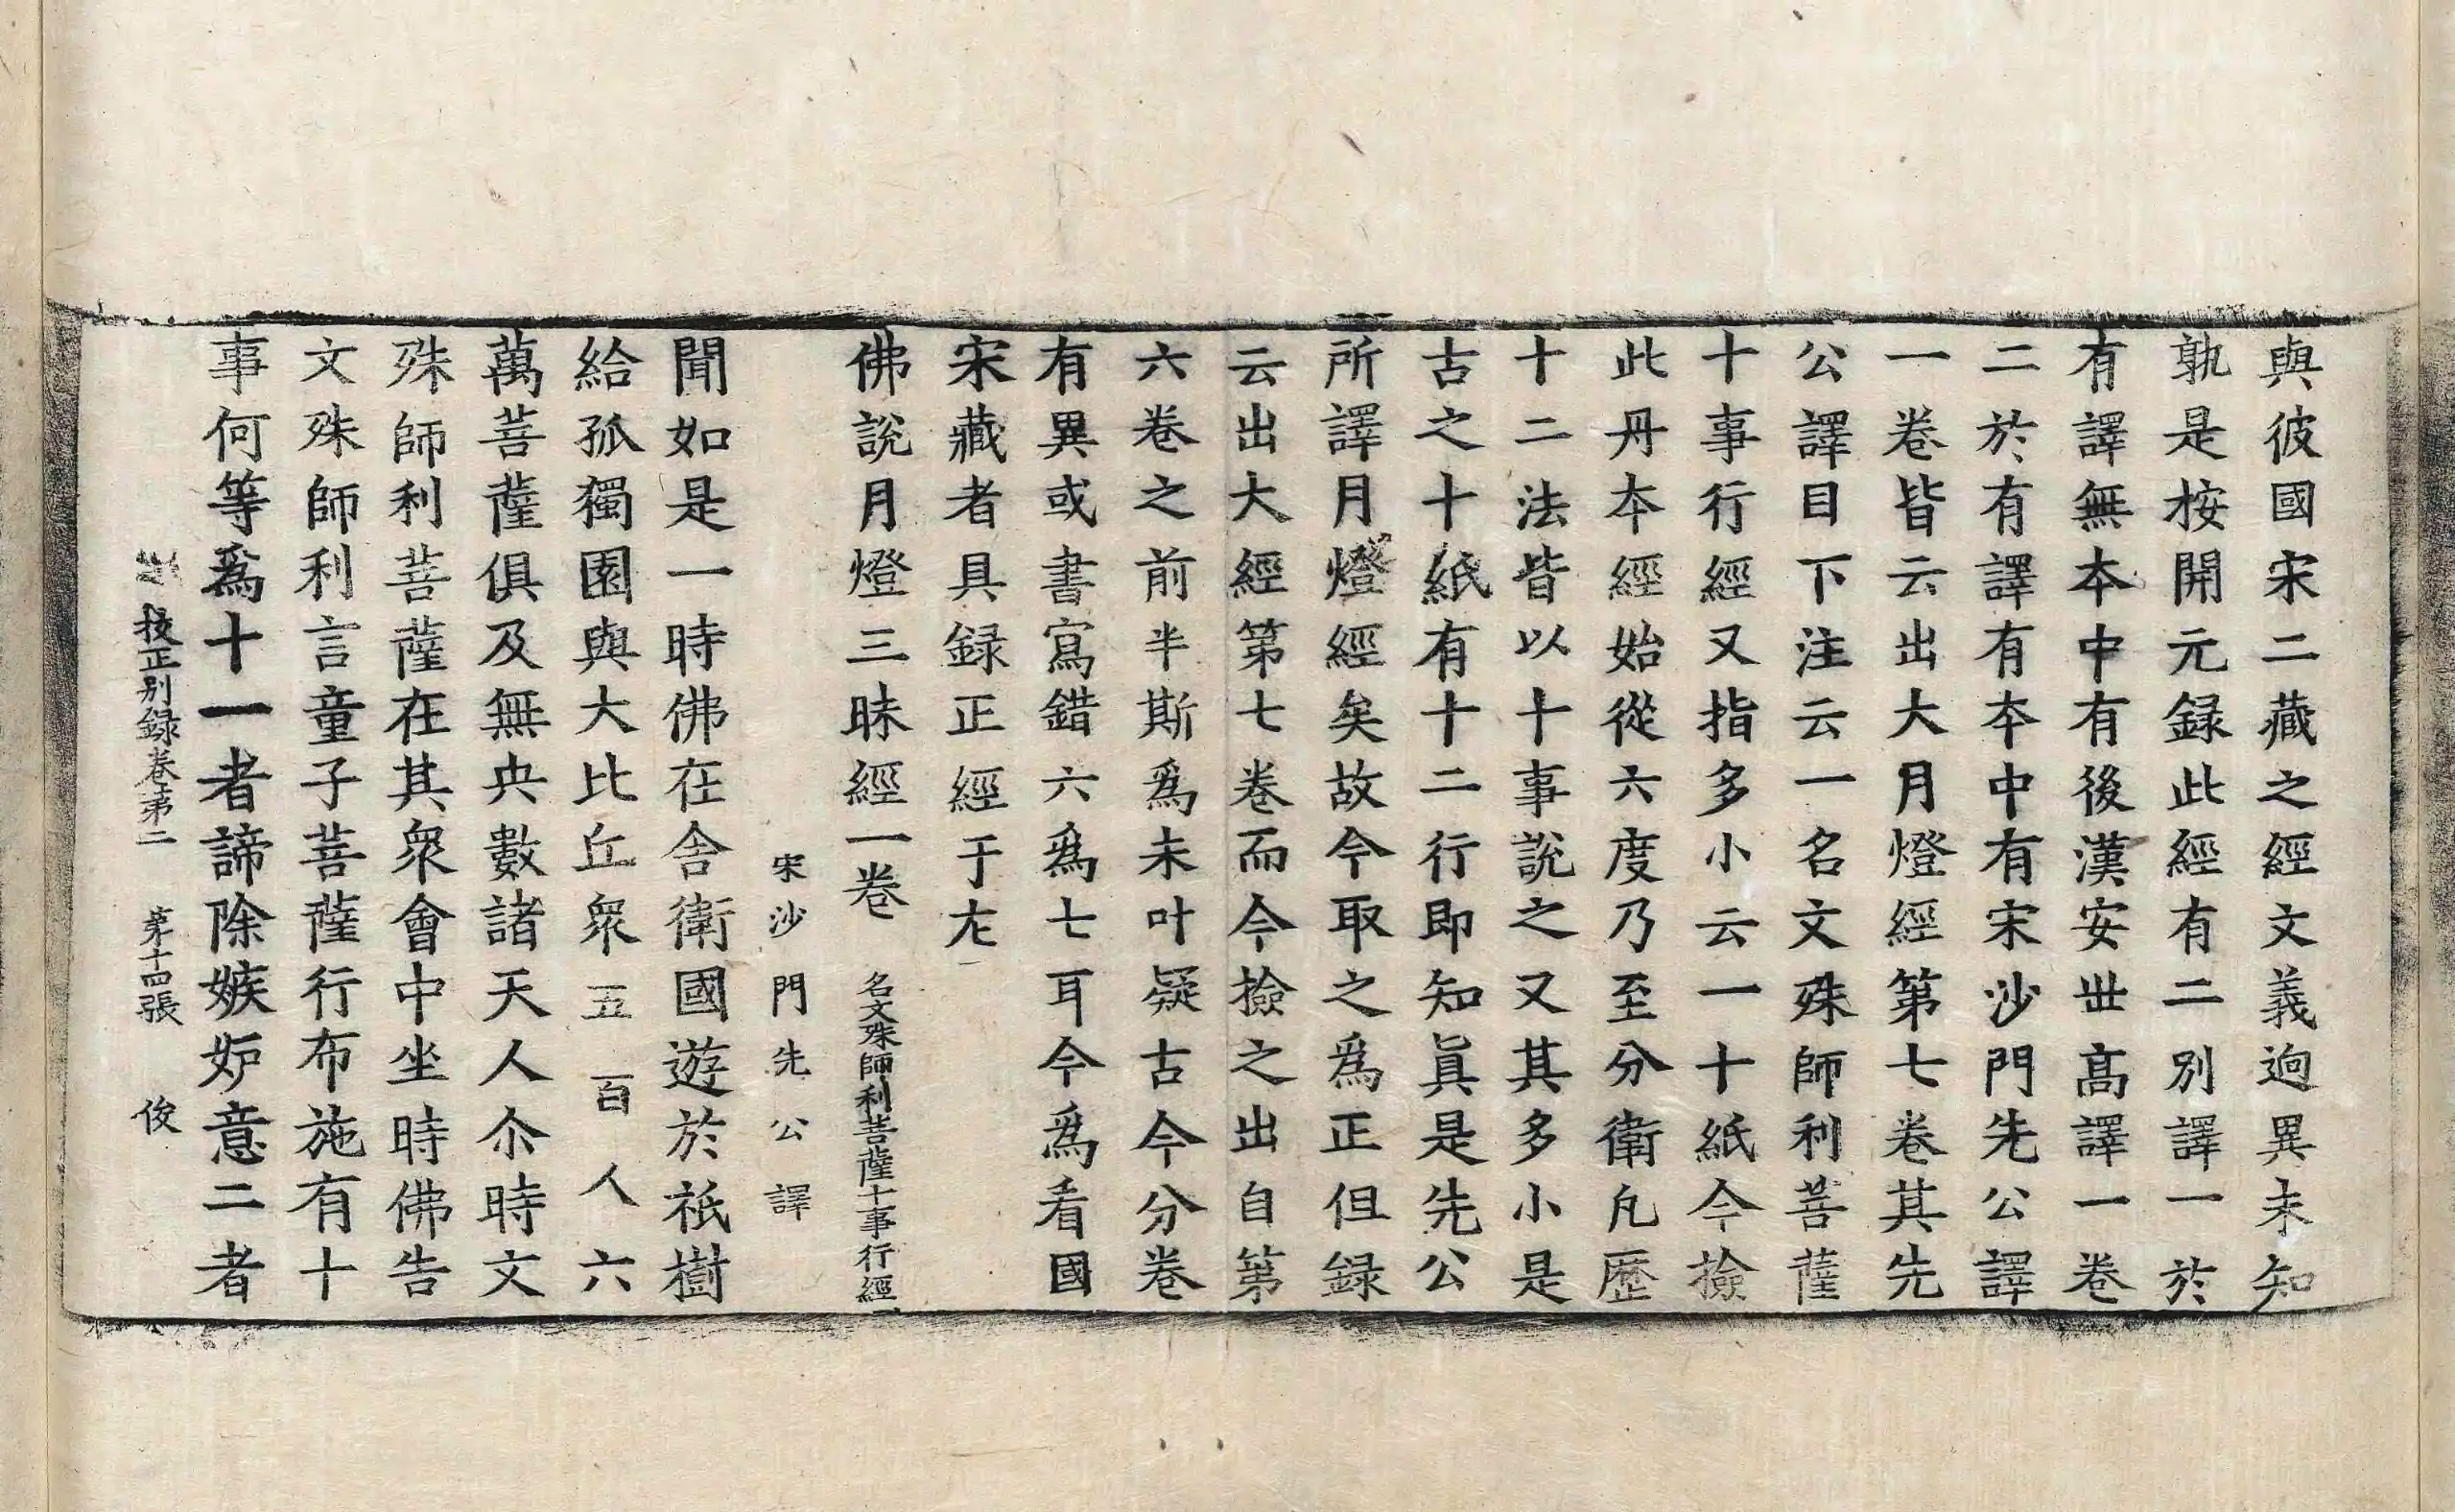 與彼國宋二藏之經文義逈異未知
孰是按開元録此經有二別譯一於
有譯無本中有後漢安世髙譯一卷
二於有譯有本中有宋沙門先公譯
一卷皆云出大月燈經第七卷其先
公譯目下注云一名文殊師利菩薩
十事行經又指多小云一十紙今撿
此丹本經始從六度乃至分衛凡歷
十二法皆以十事說之又其多小是
古之十紙有十二行即知真是先公
所譯月燈經矣故今取之爲正但録
云出大經第七卷而今撿之出自第
六卷之前半斯爲未叶疑古今分卷
有異或書寫錯六爲七耳今爲看國
宋藏者具録正經于左
佛說月燈三昧經一卷 名文殊師利菩薩十事行經一
宋沙門先公譯
聞如是一時佛在舍衛國遊於祇樹
給孤獨園與大比丘衆五百人六
萬菩薩俱及無央數諸天人尒時文
殊師利菩薩在其衆會中坐時佛告
文殊師利言童子菩薩行布施有十
事何等爲十一者諦除嫉妒意二者
校正別録卷第二 第十四張 俊